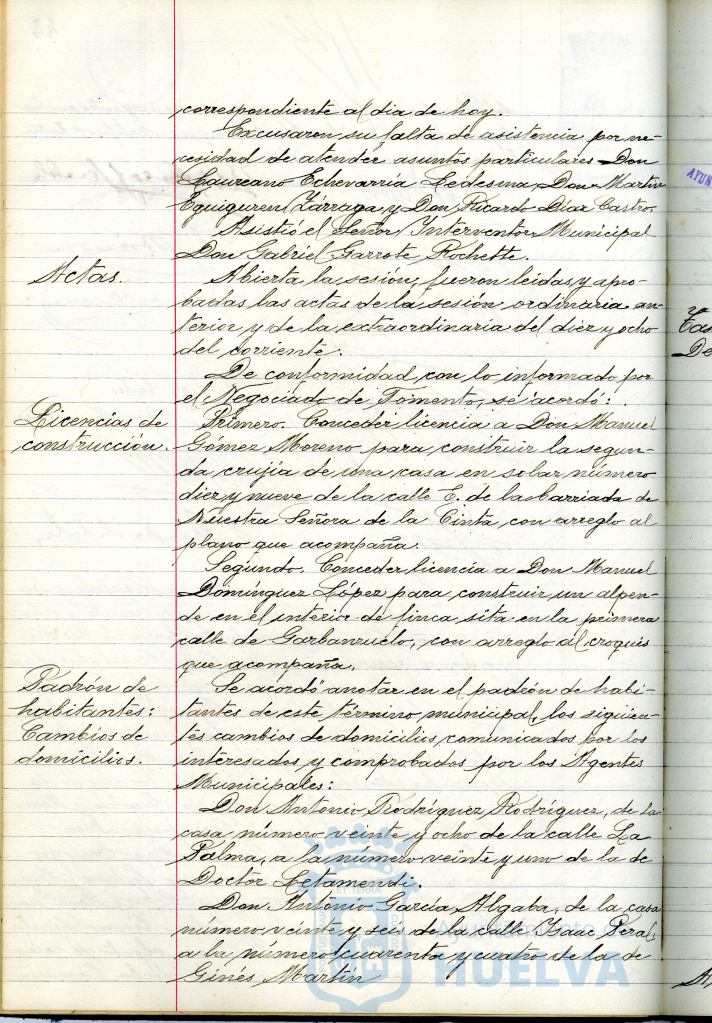 correspondiente al dia de hoy.
Excusaron su falta de asistencia, por ne-
cesidad de atender asuntos particulares Don
Laureano Echevarría Ledesma, Don Martín
Eguiguren Zárraga, y Don Ricardo Díaz Castro.
Asistió el Señor Interventor Municipal
Don Gabriel Garrote Rochette.
Actas.
Abierta la sesión, fueron leidas y apro-
badas las actas de la sesión ordinaria an-
terior y de la extraordinaria del diez y ocho
del corriente.
De conformidad con lo informado por
el Negociado de Fomento, se acordó:
Licencias de
construcción.
Primero. Conceder licencia a Don Manuel
Gómez Moreno para construir la segun-
da crujía de una casa en solar número
diez y nueve de la calle E. de la barriada de
Nuestra Señora de la Cinta, con arreglo al
plano que acompaña.
Segundo. Conceder licencia a Don Manuel
Domínguez López para construir un alpen-
de en el interior de finca sita en la primera
calle de Garbanzuelo, con arreglo al croquis
que acompaña.
Padrón de
habitantes:
Cambios de
domicilios.
Se acordó anotar en el padrón de habi-
tantes de este término municipal, los siguien-
tes cambios de domicilios, comunicados por los
interesados y comprobados por los Agentes
Municipales:
Don Antonio Rodríguez Rodríguez, de la
casa número veinte y ocho de la calle La
Palma, a la número veinte y uno de la de
Doctor Letamendi.
Don Antonio García Algaba, de la casa
número veinte y seis de la calle Isaac Peral,
a la número cuarenta y cuatro de la de
Ginés Martín
Ayuntamiento de
HUELVA
AYUN